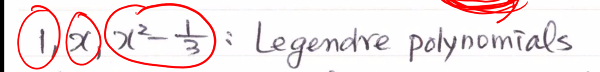 1, x, x² - 1/3 : Legendre polynomials